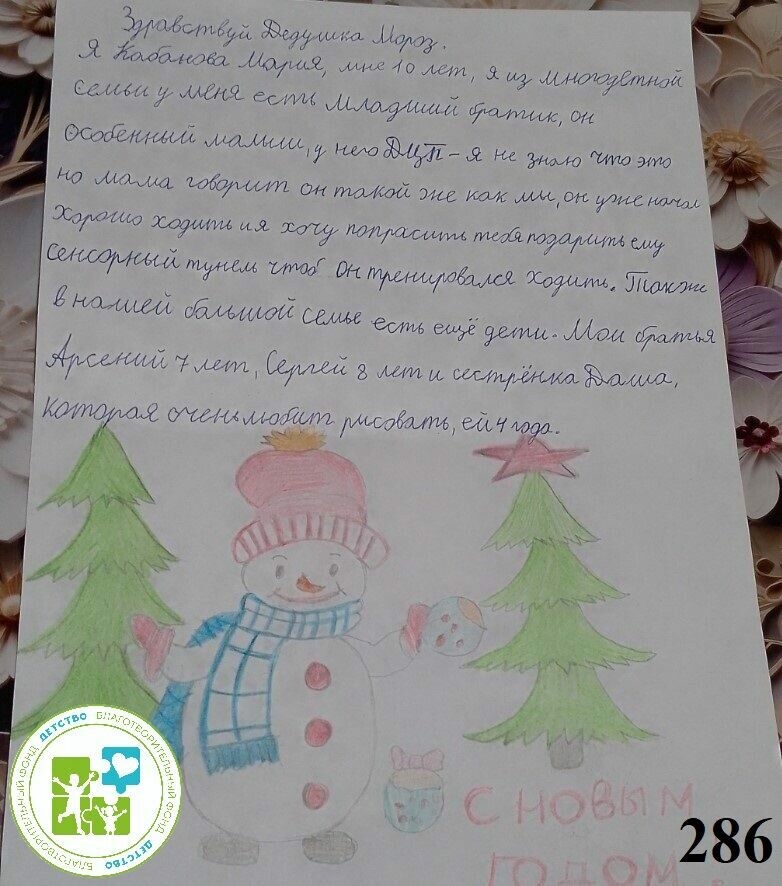 Здравствуй Дедушка Мороз.
Я Кабанова Мария, мне 10 лет, я из многодетной
семьи у меня есть младший братик, он
особенный малыш, у него ДЦП - я не знаю что это
но мама говорит он такой же как мы, он уже начал
хорошо ходить и я хочу попрасить тебя подарить ему
сенсорный тунель чтоб он тренировался ходить. Также
в нашей большой семье есть ещё дети. Мои братья
Арсений 7 лет, Сергей 8 лет и сестрёнка Даша,
которая очень любит рисовать, ей 4 года.
С НОВЫМ
ГОДОМ.
286
БЛАГОТВОРИТЕЛЬНЫЙ ФОНД ДЕТСТВО
БЛАГОТВОРИТЕЛЬНЫЙ ФОНД ДЕТСТВО